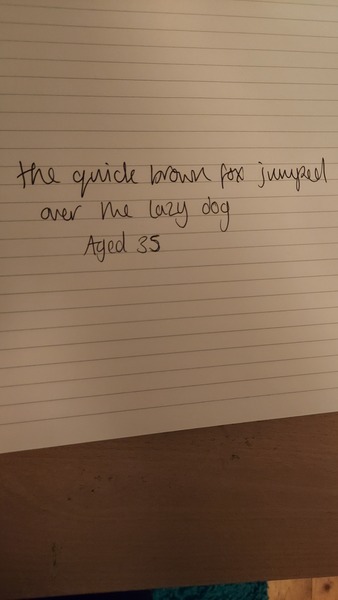 the quick brown fox jumped
over the lazy dog
Aged 35